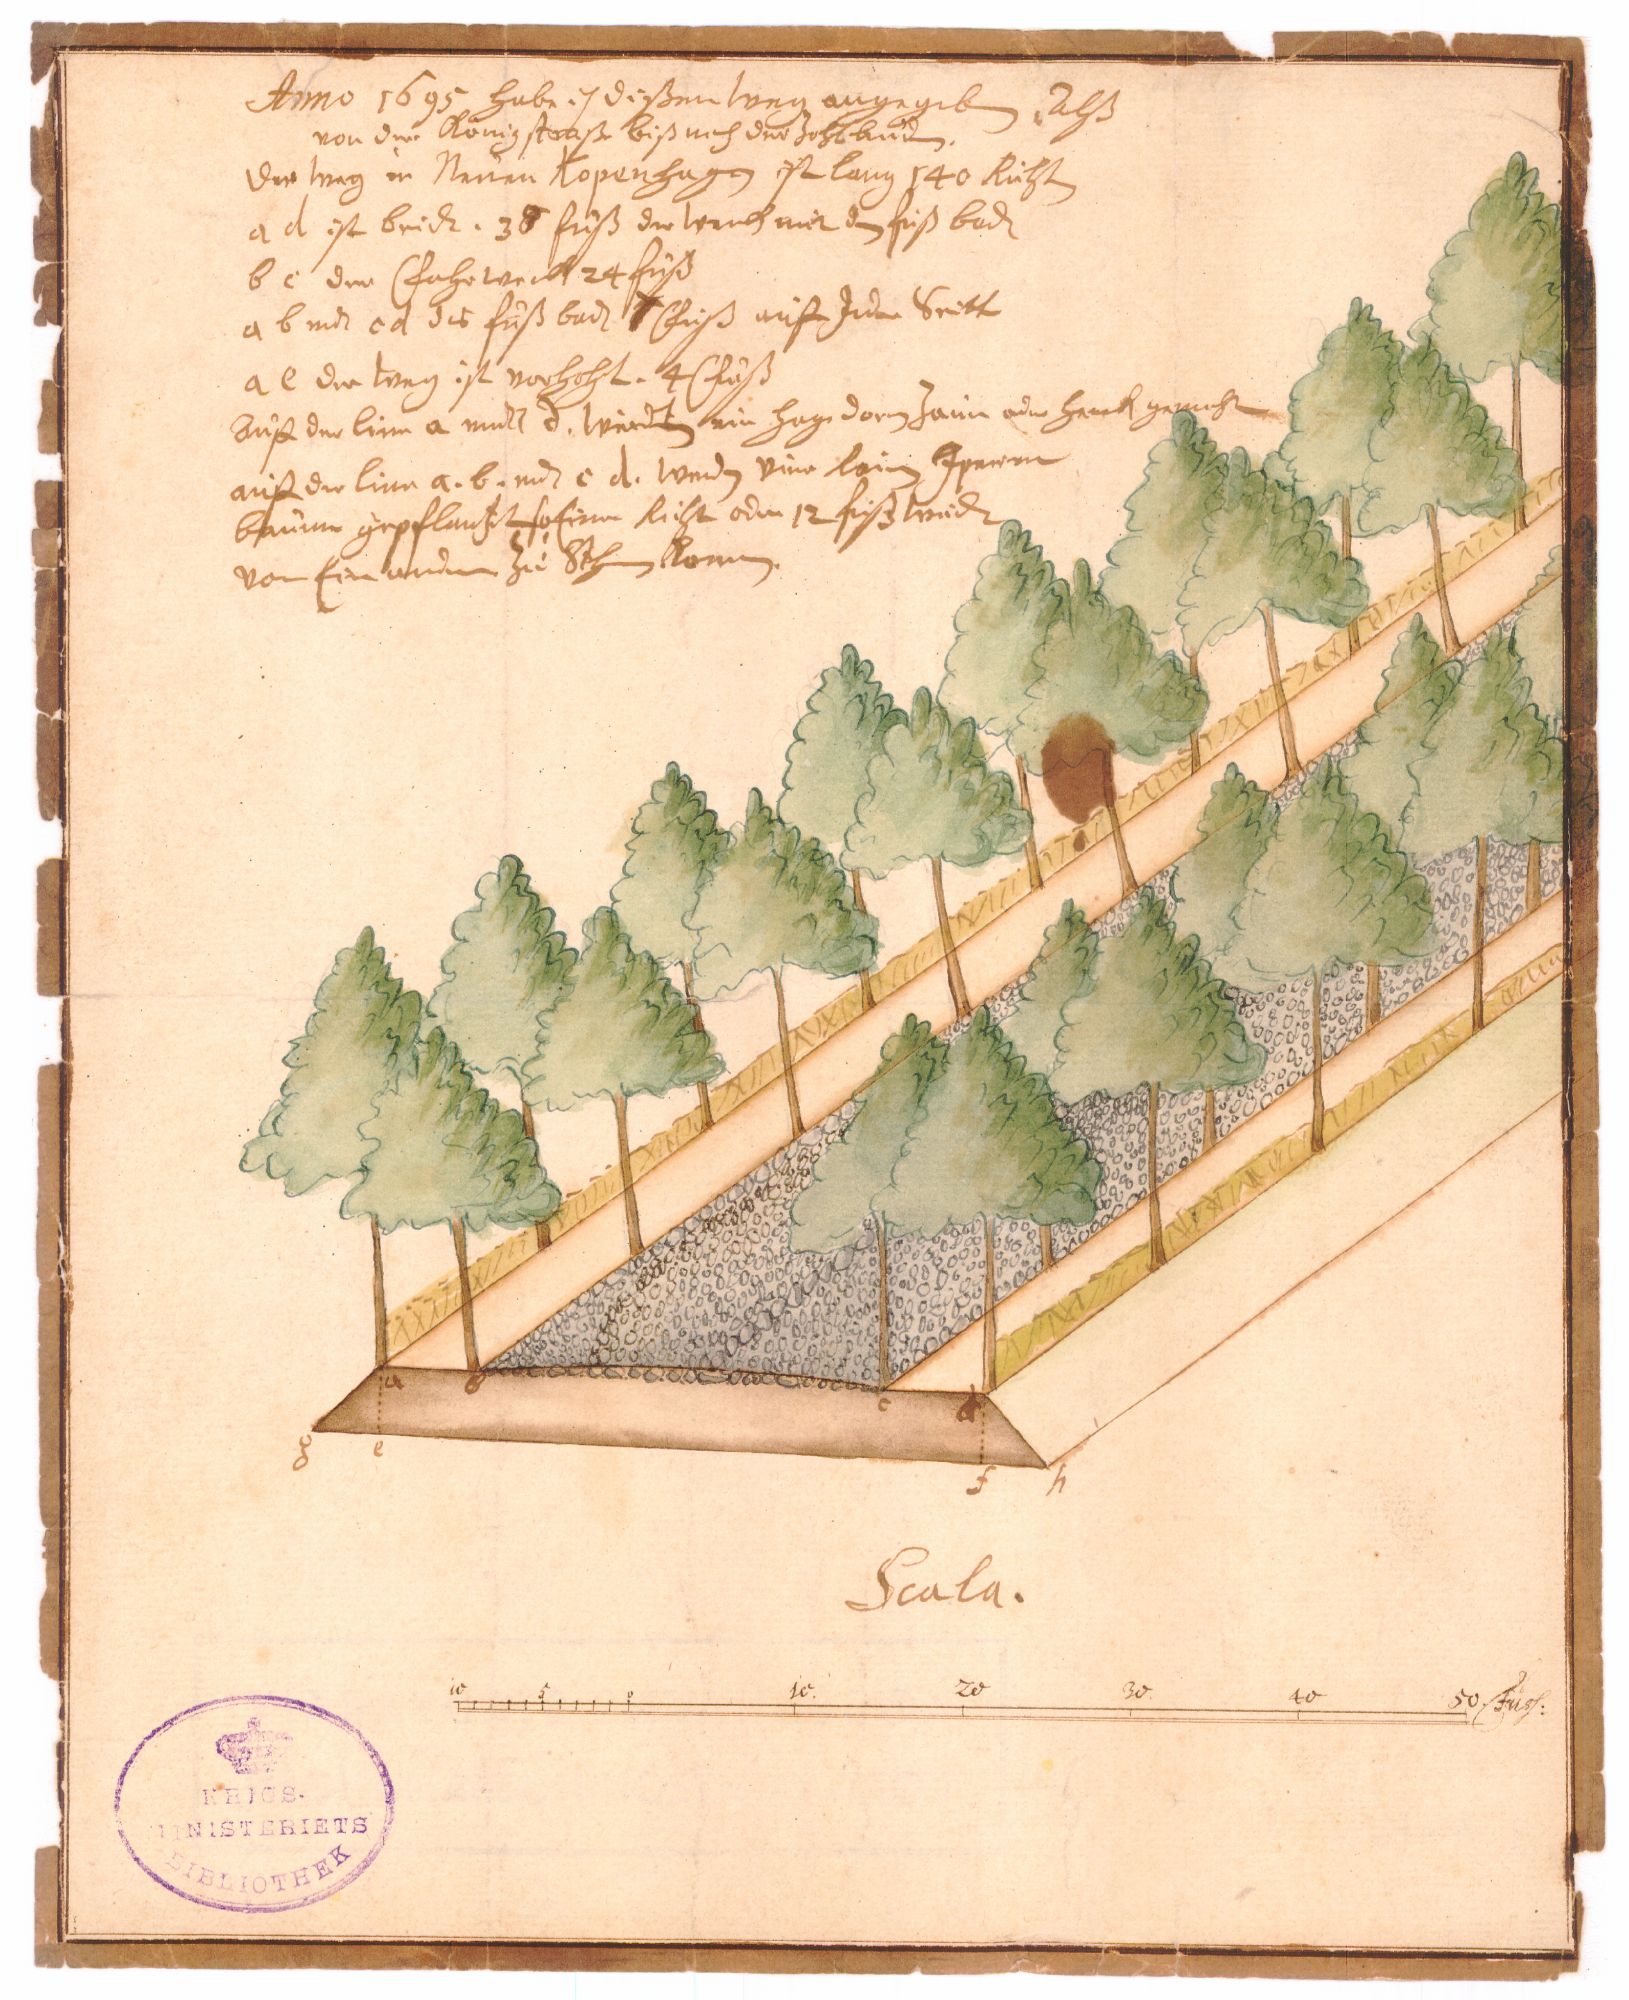 Anno 1695 habe ich dißen Weg angegeben Alß
von der Königstraße biß nach der
Der Weg in Neuen Kopenhagen ist lang 140 Ruht
a d ist breidt . 38 fuß der werck mit dem fuß bad
b c der Fahrweck 24 fuß
a b undt c d des fuß bad 7 Fuß auff Jeder Seitt
a e der Weg ist vorhoht . 4 Fuß
Auff der linie a undt d. wierdt ein hagedorn Zaun oder heck gemacht
auff der linie a . b . undt c d . werden Iperen
baume gepflantzt so einer Ruht oder 12 fuß weidt
von Ein ander zu Stehen Komen.
a b c d
g e f h
Scala .
10 5 0 10. 20 30. 40 50 Fuss:
KRIGS-
MINISTERIETS
BIBLIOTHEK